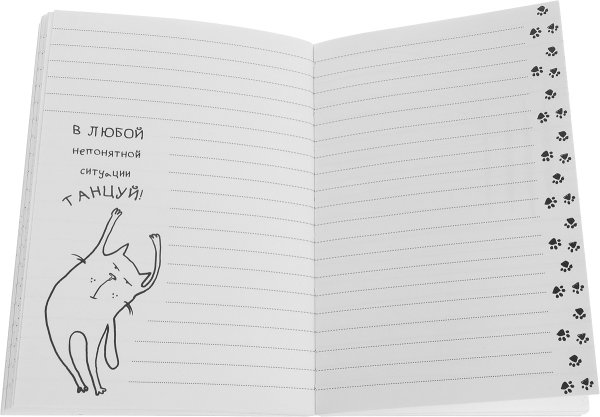 В ЛЮБОЙ
непонятной
ситуации
ТАНЦУЙ!